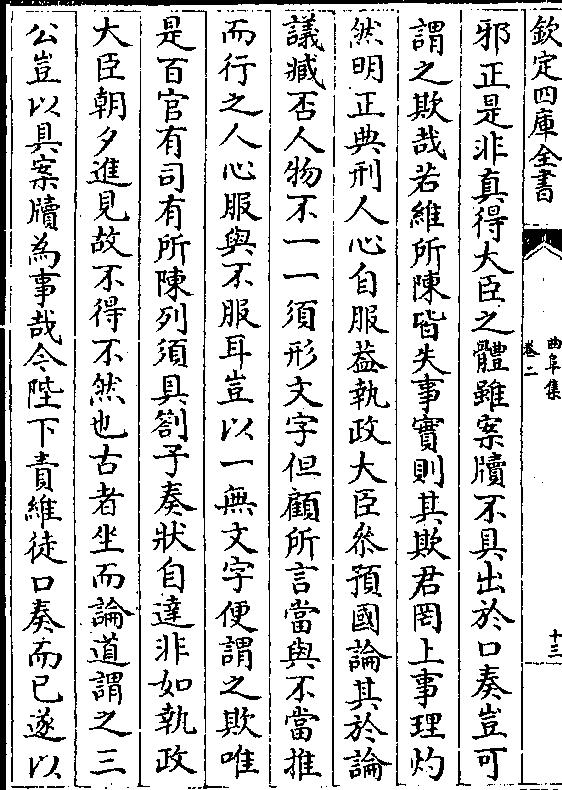 欽定四庫全書
曲阜集
卷二
十三
邪正是非真得大臣之體雖案牘不具出於口奏豈可
謂之欺哉若維所陳皆失事實則其欺君罔上事理灼
然明正典刑人心自服葢執政大臣叅預國論其於論
議臧否人物不一一須形文字但顧所言當與不當推
而行之人心服與不服耳豈以一無文字便謂之欺唯
是百官有司有所陳列須具劄子奏狀自達非如執政
大臣朝夕進見故不得不然也古者坐而論道謂之三
公豈以具案牘為事哉今陛下責維徒口奏而已遂以